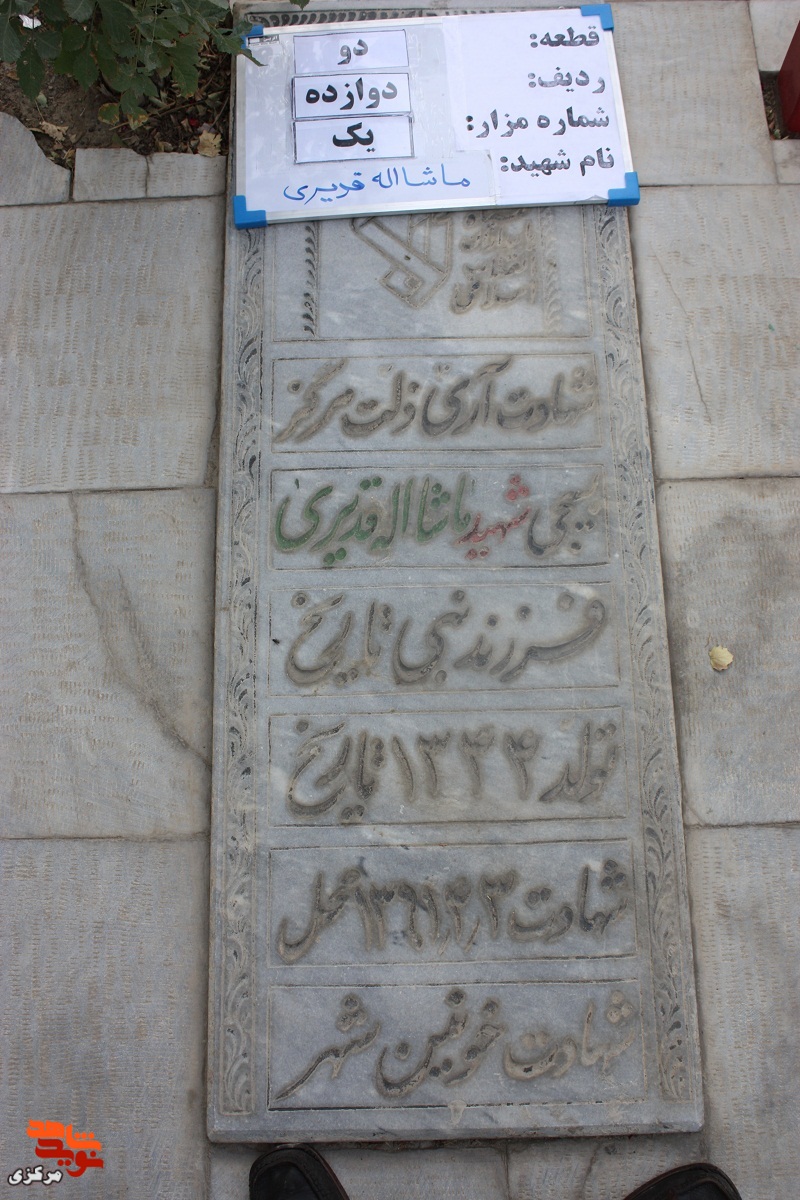 قطعه: دو
ردیف: دوازده
شماره مزار: یک
نام شهید: ماشااله قدیری
شهادت آری ذلت هرگز
بسیجی شهید ماشااله قدیری
فرزند نبی تاریخ
تولد ۱۳۴۴ تاریخ
شهادت ۱۳۶۱/۳/۳ محل
شهادت خونین شهر
نوید شاهد
مرکزی